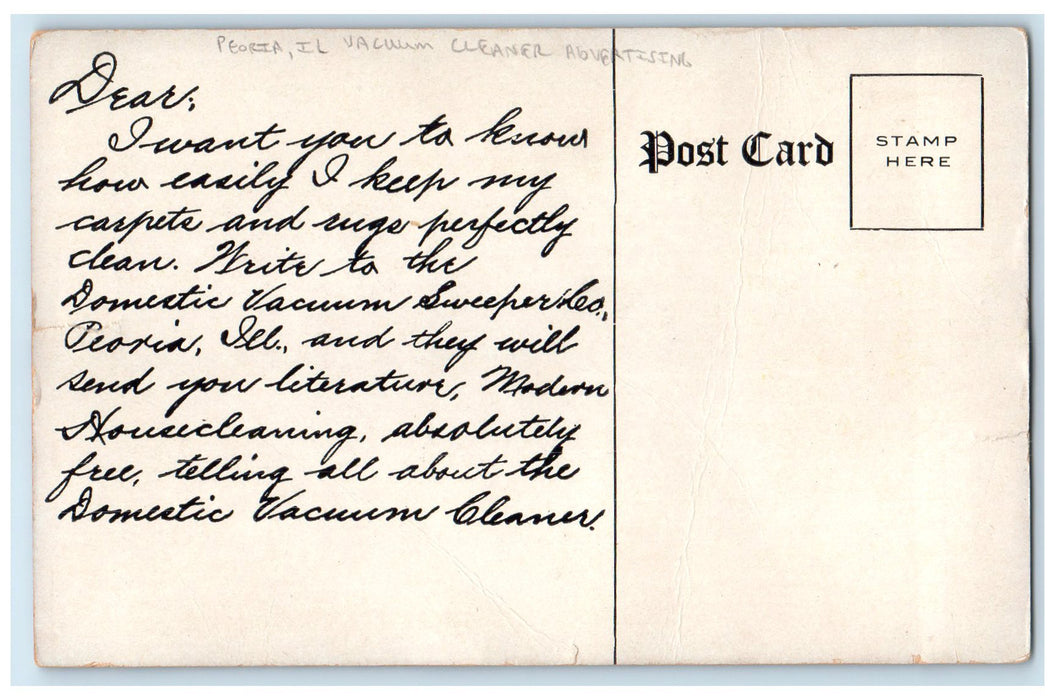 PEORIA, IL VACUUM CLEANER ADVERTISING
Dear:
I want you to know
how easily I keep my
carpets and rugs perfectly
clean. Write to the
Domestic Vacuum Sweeper Co.,
Peoria, Ill., and they will
send you literature, Modern
Housecleaning, absolutely
free, telling all about the
Domestic Vacuum Cleaner.
Post Card
STAMP
HERE